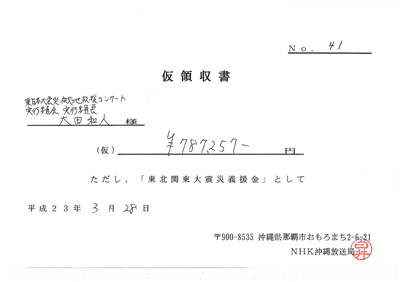 No. 41
仮領収書
東日本大震災被災地救援コンサート
実行委員会 実行委員長
大田和人 様
(仮) ¥787,257- 円
ただし、「東北関東大震災義援金」として
平成23年 3月 28日
〒900-8535 沖縄県那覇市おもろまち2-6-21
NHK沖縄放送局